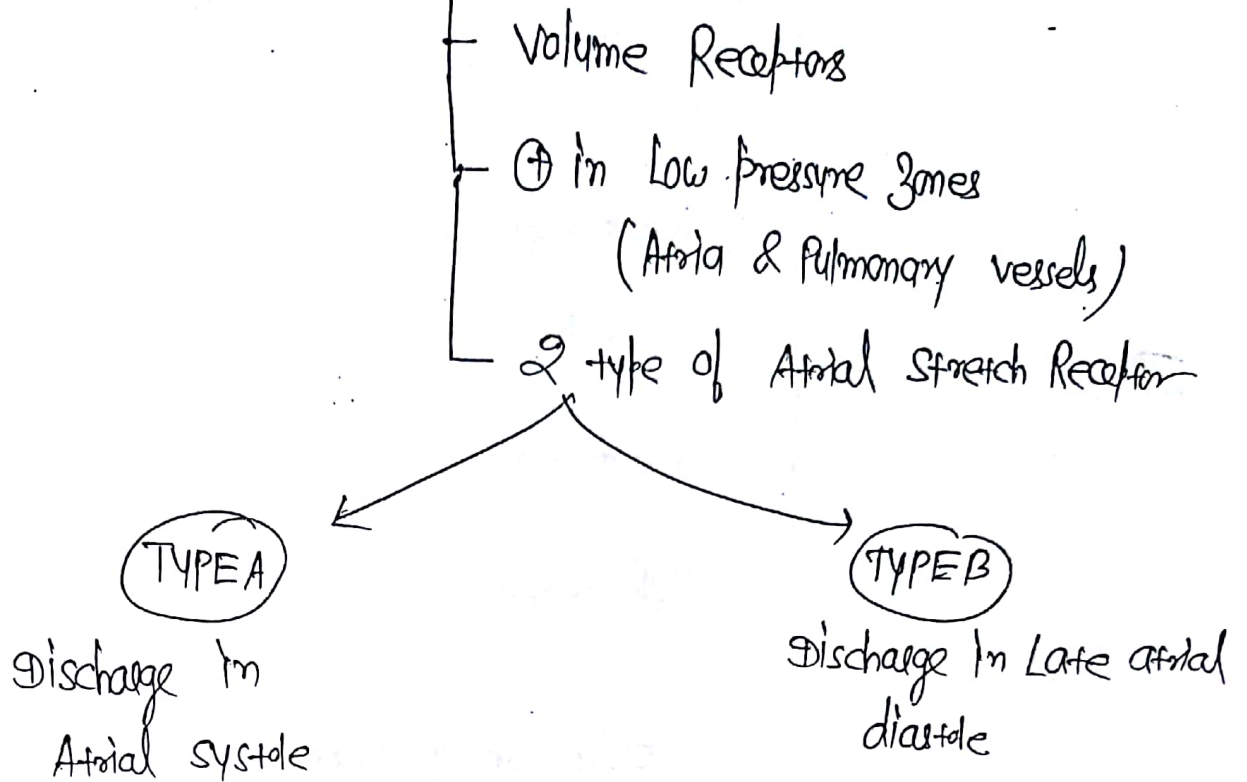 Volume Receptors
⊕ in Low pressure zones
(Atria & Pulmonary vessels)
2 type of Atrial Stretch Receptor
TYPE A
TYPE B
Discharge in
Atrial systole
Discharge in Late atrial
diastole